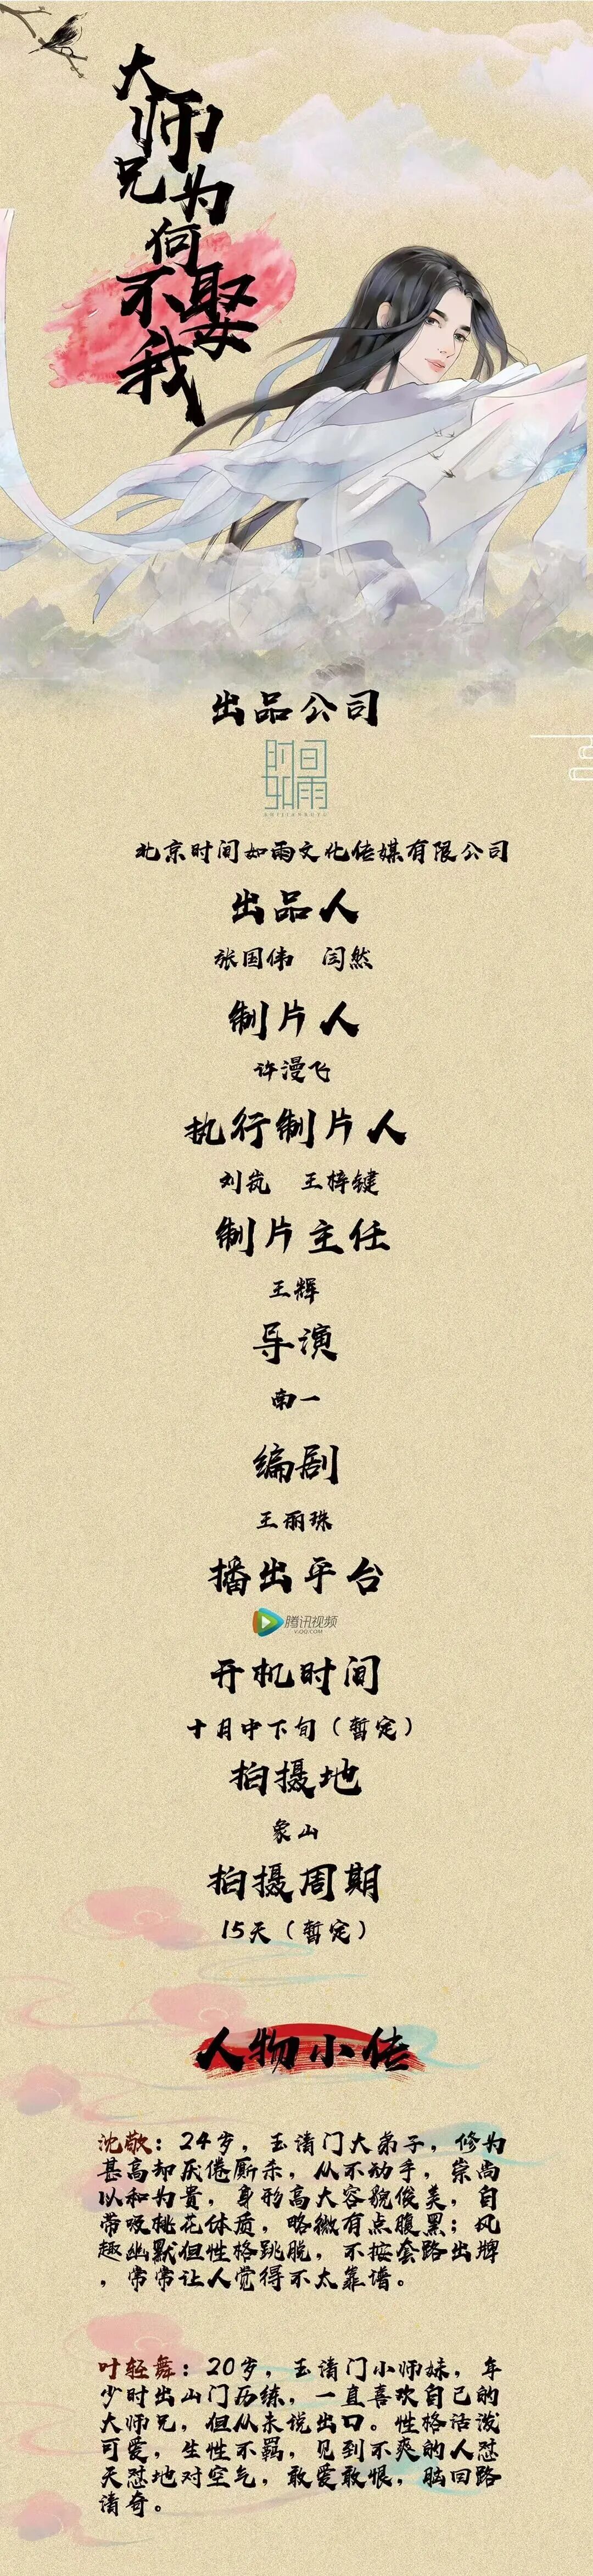 大师兄为何不娶我
出品公司
时间如雨
SHIJIANRUYU
北京时间如雨文化传媒有限公司
出品人
张国伟 闫然
制片人
许漫飞
执行制片人
刘岚 王梓键
制片主任
王辉
导演
南一
编剧
王丽珠
播出平台
腾讯视频
V.QQ.COM
开机时间
十月中下旬（暂定）
拍摄地
象山
拍摄周期
15天（暂定）
人物小传
沈敬：24岁，玉清门大弟子，修为
甚高却厌倦厮杀，从不动手，崇尚
以和为贵，身形高大容貌俊美，自
带吸桃花体质，略微有点腹黑；风
趣幽默但性格跳脱，不按套路出牌
，常常让人觉得不太靠谱。
叶轻舞：20岁，玉清门小师妹，年
少时出山门历练，一直喜欢自己的
大师兄，但从未说出口。性格活泼
可爱，生性不羁，见到不爽的人怼
天怼地对空气，敢爱敢恨，脑回路
清奇。